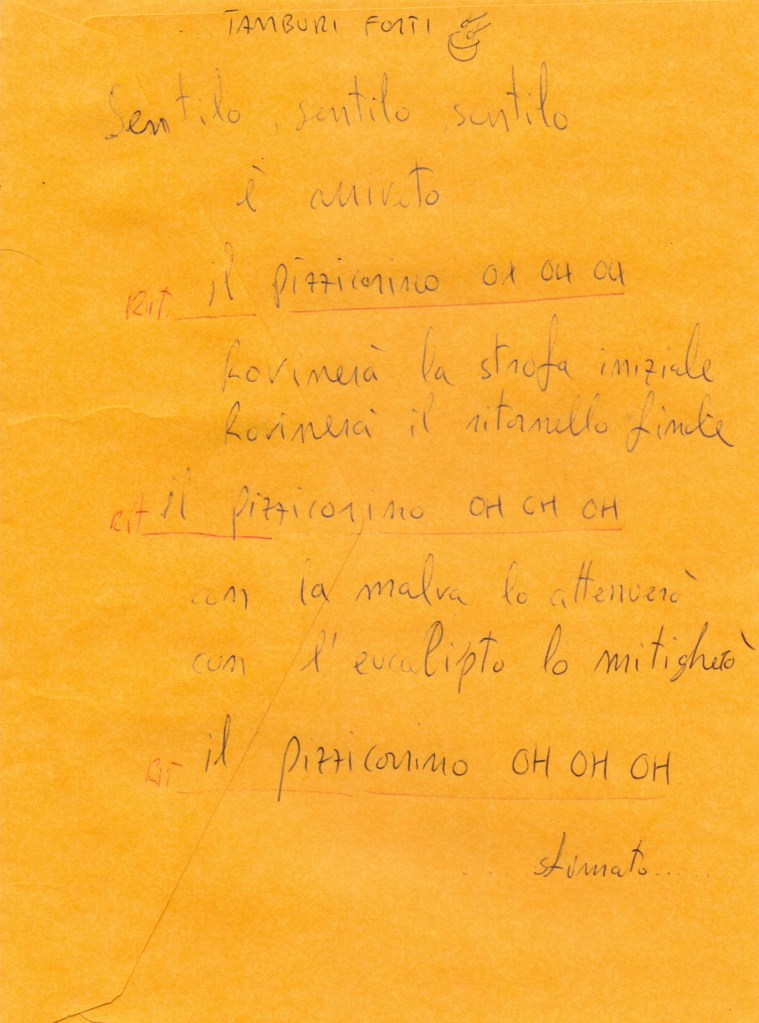 TAMBURI FORTI
Sentilo, sentilo sentilo
è arrivato
RIT. il pizzicorino OH OH OH
Rovinerà la strofa iniziale
Rovinerà il ritornello finale
RIT il pizzicorino OH OH OH
con la malva lo attenuerò
con l'eucalipto lo mitigherò
RIT il pizzicorino OH OH OH
.. sfumato.....